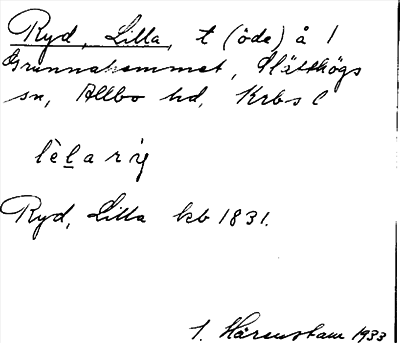 Ryd, Lilla, t (öde) å 1
Grunnahemmet, Slätthögs
sn, Allbo hd, Krbs l
lèl̠a rỳ
Ryd, Lilla kb 1831.
I. Härenstam 1933